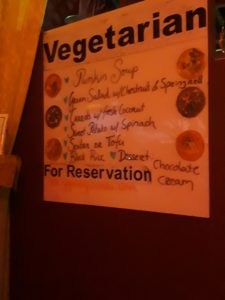 Vegetarian
Pumkin Soup
Salad w/ Chestnut & Spring roll
w/ Fresh Coconut
Sweet Potato w/ Spinach
or Tofu
Rice Dessert - Chocolate
Cream
For Reservation